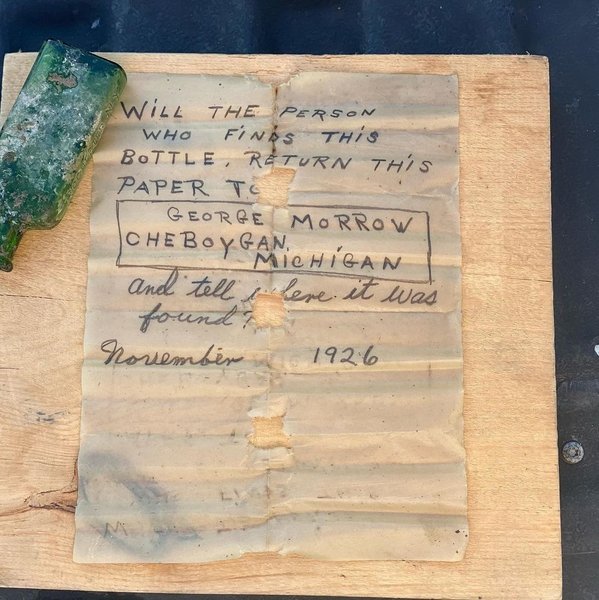 WILL THE PERSON
WHO FINDS THIS
BOTTLE, RETURN THIS
PAPER TO
GEORGE MORROW
CHEBOYGAN,
MICHIGAN
and tell where it was
found?
November 1926